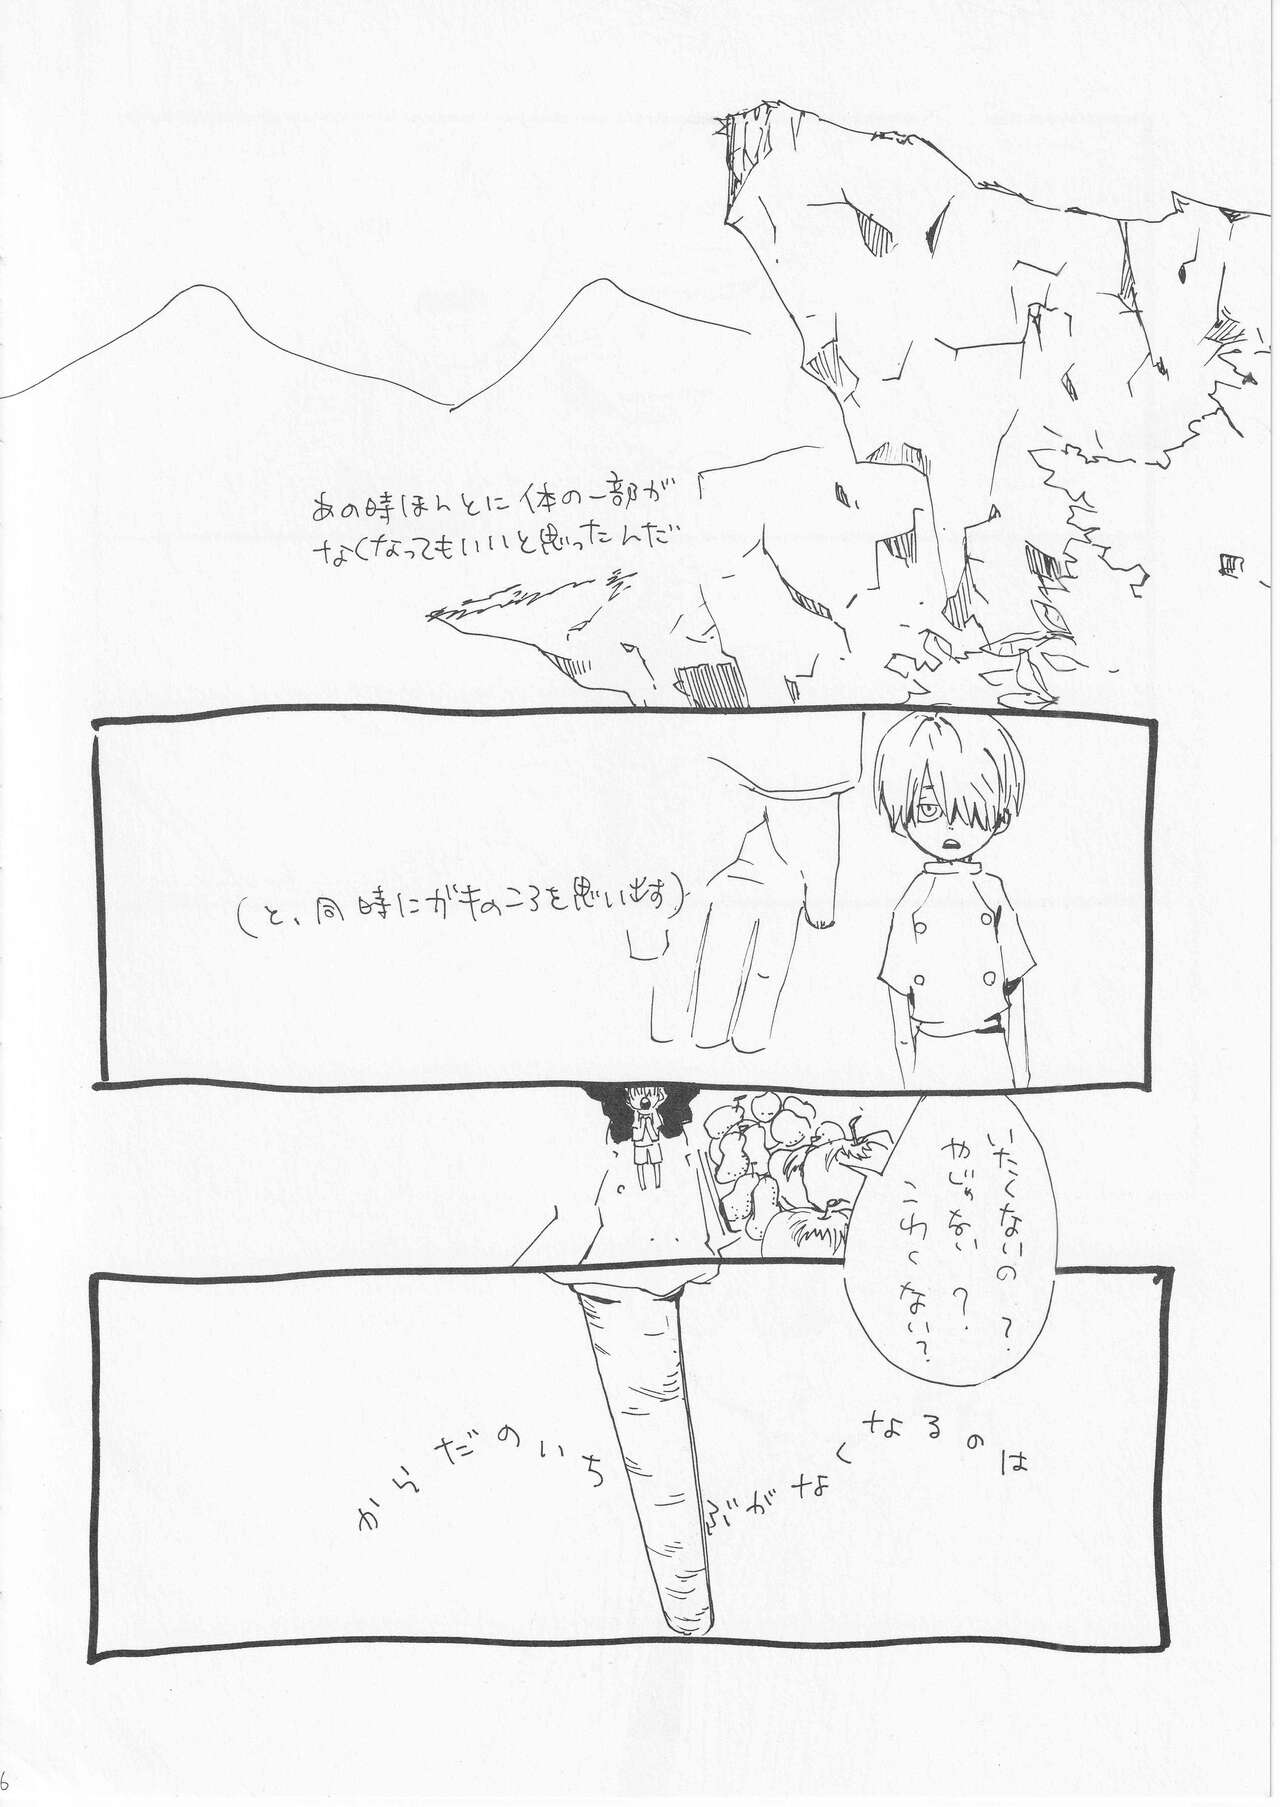 あの時ほんとに体の一部が
なくなってもいいと思ったんだ
(と、同時にガキのころを思い出す)
いたくないの?
やじゃない?
こわくない?
からだのいちぶがなくなるのは
6